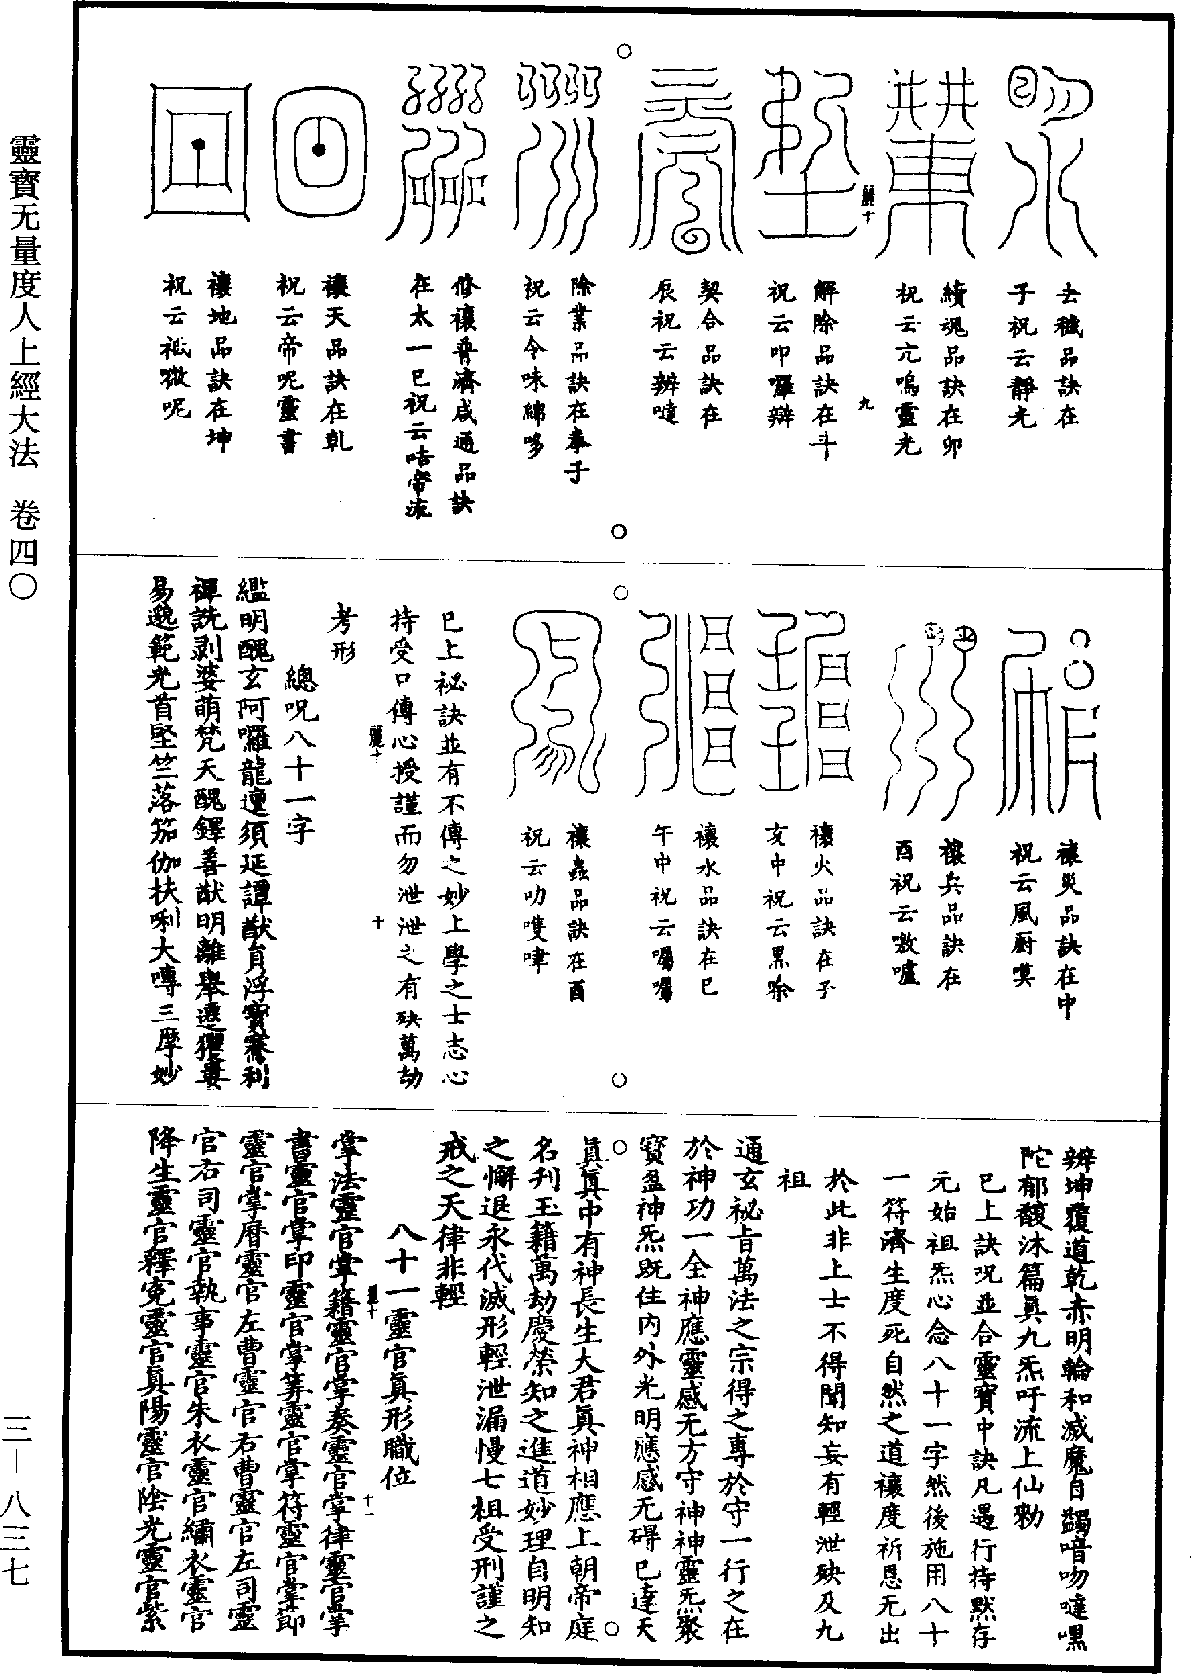 靈寶无量度人上經大法　卷四〇
三－八三七
去穢品訣在
子祝云靜光
續魂品訣在卯
祝云亢嗚靈光
解除品訣在斗
祝云叩囉辯
契合品訣在
辰祝云辨噠
除業品訣在奉子
祝云令味綿哆
修禳普濟咸通品訣
在太一巳祝云咭帝流
禳天品訣在乾
祝云帝呢靈書
禳地品訣在坤
祝云祗微呢
禳災品訣在中
祝云風廚嘆
禳兵品訣在
酉祝云嗷嚧
禳火品訣在子
亥中祝云黑唋
禳水品訣在巳
午中祝云囑囑
禳蟲品訣在酉
祝云叻嘍㖇
巳上祕訣並有不傳之妙上學之士志心
持受口傳心授謹而勿泄泄之有殃萬劫
考形
總呪八十一字
鑑明醜玄阿囉龍邅須延譚猷貟浮寶騫利
禪詵剥婆萌梵天醜鐸善猷明離舉遷獲婁
易邈範光首堅竺落笳伽扶唎大嘑三摩妙
辨坤覆道乾赤明輪和減魔自蠲喑吻噠嘿
陀郁馥沐篇眞九炁吁流上仙勑
巳上訣呪並合靈寶中訣凡遇行持默存
元始祖炁心念八十一字然後施用八十
一符濟生度死自然之道禳度祈恩无出
於此非上士不得聞知妄有輕泄殃及九
祖
通玄祕旨萬法之宗得之專於守一行之在
於神功一全神應靈感无方守神神靈炁聚
寶盈神炁既住内外光明應感无碍巳達天
眞眞中有神長生大君眞神相應上朝帝庭
名刋玉籍萬劫慶榮知之進道妙理自明知
之懈退永代滅形輕泄漏慢七祖受刑謹之
戒之天律非輕
八十一靈官眞形職位
掌法靈官掌籍靈官掌奏靈官掌律靈官掌
書靈官掌印靈官掌筭靈官掌符靈官掌節
靈官掌曆靈官左曹靈官右曹靈官左司靈
官右司靈官執事靈官朱衣靈官繡衣靈官
降生靈官釋寃靈官眞陽靈官陰光靈官紫